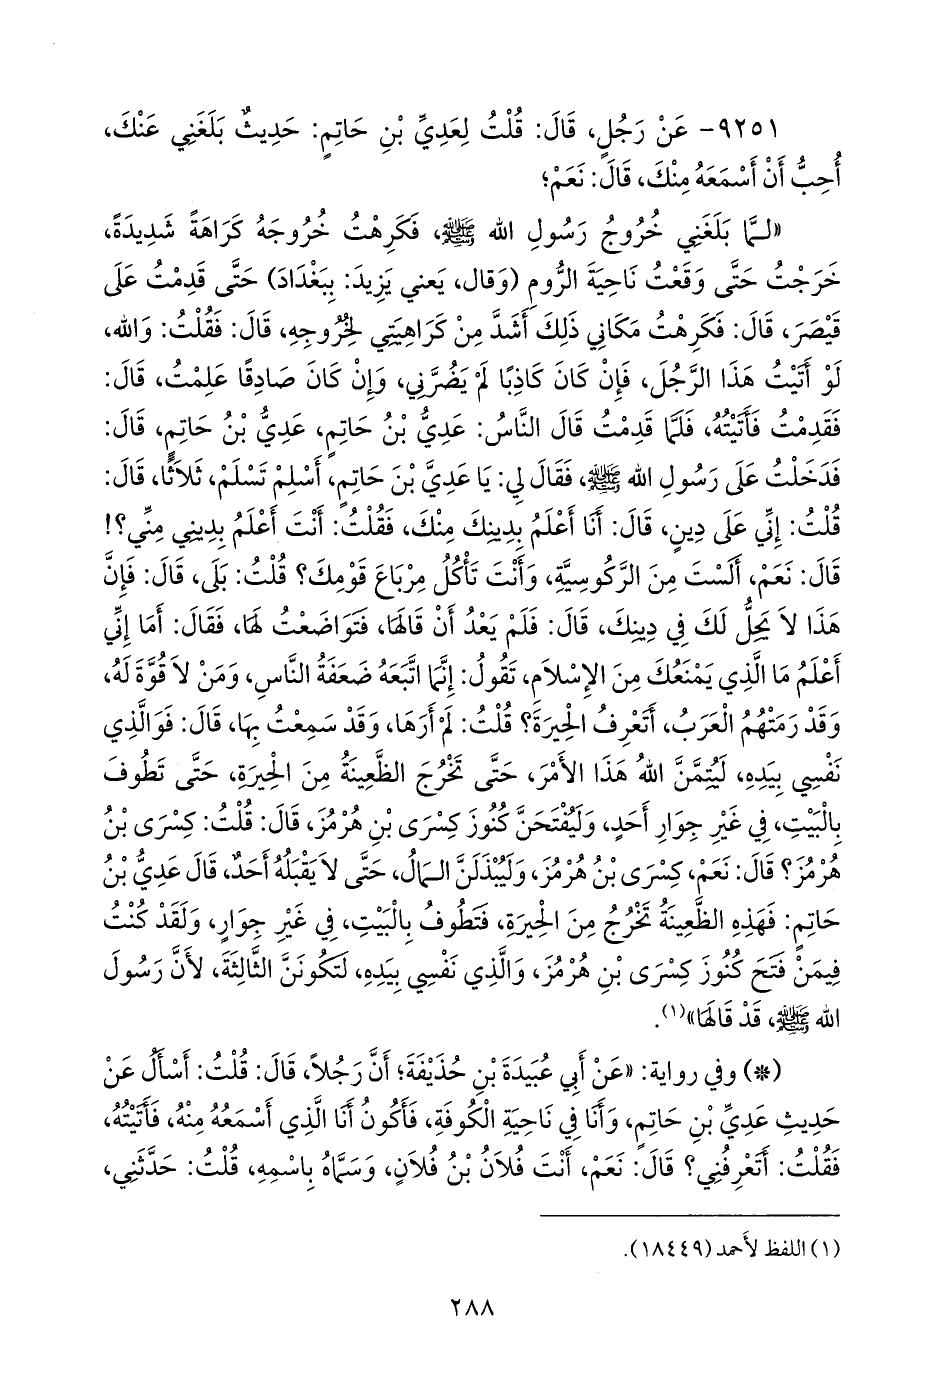 ٩٢٥١- عَنْ رَجُلٍ، قَالَ: قُلْتُ لِعَدِيِّ بْنِ حَاتِمٍ: حَدِيثٌ بَلَغَنِي عَنْكَ،
أُحِبُّ أَنْ أَسْمَعَهُ مِنْكَ، قَالَ: نَعَمْ؛
«لَمَّا بَلَغَنِي خُرُوجُ رَسُولِ الله ﷺ، فَكَرِهْتُ خُرُوجَهُ كَرَاهَةً شَدِيدَةً،
خَرَجْتُ حَتَّى وَقَعْتُ نَاحِيَةَ الرُّومِ (وَقال، يَعني يَزِيدَ: بِبَغْدَادَ) حَتَّى قَدِمْتُ عَلَى
قَيْصَرَ، قَالَ: فَكَرِهْتُ مَكَانِي ذَلِكَ أَشَدَّ مِنْ كَرَاهِيَتِي لِخُرُوجِهِ، قَالَ: فَقُلْتُ: وَالله،
لَوْ أَتَيْتُ هَذَا الرَّجُلَ، فَإِنْ كَانَ كَاذِبًا لَمْ يَضُرَّنِي، وَإِنْ كَانَ صَادِقًا عَلِمْتُ، قَالَ:
فَقَدِمْتُ فَأَتَيْتُهُ، فَلَمَّا قَدِمْتُ قَالَ النَّاسُ: عَدِيُّ بْنُ حَاتِمٍ، عَدِيُّ بْنُ حَاتِمٍ، قَالَ:
فَدَخَلْتُ عَلَى رَسُولِ الله ﷺ، فَقَالَ لِي: يَا عَدِيَّ بْنَ حَاتِمٍ، أَسْلِمْ تَسْلَمْ، ثَلاَثًا، قَالَ:
قُلْتُ: إِنِّي عَلَى دِينٍ، قَالَ: أَنَا أَعْلَمُ بِدِينِكَ مِنْكَ، فَقُلْتُ: أَنْتَ أَعْلَمُ بِدِينِي مِنِّي؟!
قَالَ: نَعَمْ، أَلَسْتَ مِنَ الرَّكُوسِيَّةِ، وَأَنْتَ تَأْكُلُ مِرْبَاعَ قَوْمِكَ؟ قُلْتُ: بَلَى، قَالَ: فَإِنَّ
هَذَا لاَ يَحِلُّ لَكَ فِي دِينِكَ، قَالَ: فَلَمْ يَعْدُ أَنْ قَالَهَا، فَتَوَاضَعْتُ لَهَا، فَقَالَ: أَمَا إِنِّي
أَعْلَمُ مَا الَّذِي يَمْنَعُكَ مِنَ الإِسْلاَمِ، تَقُولُ: إِنَّمَا اتَّبَعَهُ ضَعَفَةُ النَّاسِ، وَمَنْ لاَ قُوَّةَ لَهُ،
وَقَدْ رَمَتْهُمُ الْعَرَبُ، أَتَعْرِفُ الْحِيرَةَ؟ قُلْتُ: لَمْ أَرَهَا، وَقَدْ سَمِعْتُ بِهَا، قَالَ: فَوَالَّذِي
نَفْسِي بِيَدِهِ، لَيُتِمَّنَّ اللهُ هَذَا الأَمْرَ، حَتَّى تَخْرُجَ الظَّعِينَةُ مِنَ الْحِيرَةِ، حَتَّى تَطُوفَ
بِالْبَيْتِ، فِي غَيْرِ جِوَارِ أَحَدٍ، وَلَيُفْتَحَنَّ كُنُوزَ كِسْرَى بْنِ هُرْمُزَ، قَالَ: قُلْتُ: كِسْرَى بْنُ
هُرْمُزَ؟ قَالَ: نَعَمْ، كِسْرَى بْنُ هُرْمُزَ، وَلَيُبْذَلَنَّ الْمَالُ، حَتَّى لاَ يَقْبَلُهُ أَحَدٌ، قَالَ عَدِيُّ بْنُ
حَاتِمٍ: فَهَذِهِ الظَّعِينَةُ تَخْرُجُ مِنَ الْحِيرَةِ، فَتَطُوفُ بِالْبَيْتِ، فِي غَيْرِ جِوَارٍ، وَلَقَدْ كُنْتُ
فِيمَنْ فَتَحَ كُنُوزَ كِسْرَى بْنِ هُرْمُزَ، وَالَّذِي نَفْسِي بِيَدِهِ، لَتَكُونَنَّ الثَّالِثَةَ، لأَنَّ رَسُولَ
الله ﷺ، قَدْ قَالَهَا»(١).
(*) وفي رواية: «عَنْ أَبِي عُبَيْدَةَ بْنِ حُذَيْفَةَ؛ أَنَّ رَجُلاً، قَالَ: قُلْتُ: أَسْأَلُ عَنْ
حَدِيثِ عَدِيِّ بْنِ حَاتِمٍ، وَأَنَا فِي نَاحِيَةِ الْكُوفَةِ، فَأَكُونُ أَنَا الَّذِي أَسْمَعُهُ مِنْهُ، فَأَتَيْتُهُ،
فَقُلْتُ: أَتَعْرِفُنِي؟ قَالَ: نَعَمْ، أَنْتَ فُلاَنُ بْنُ فُلاَنٍ، وَسَمَّاهُ بِاسْمِهِ، قُلْتُ: حَدَّثَنِي،
(١) اللفظ لأَحمد (١٨٤٤٩).
٢٨٨